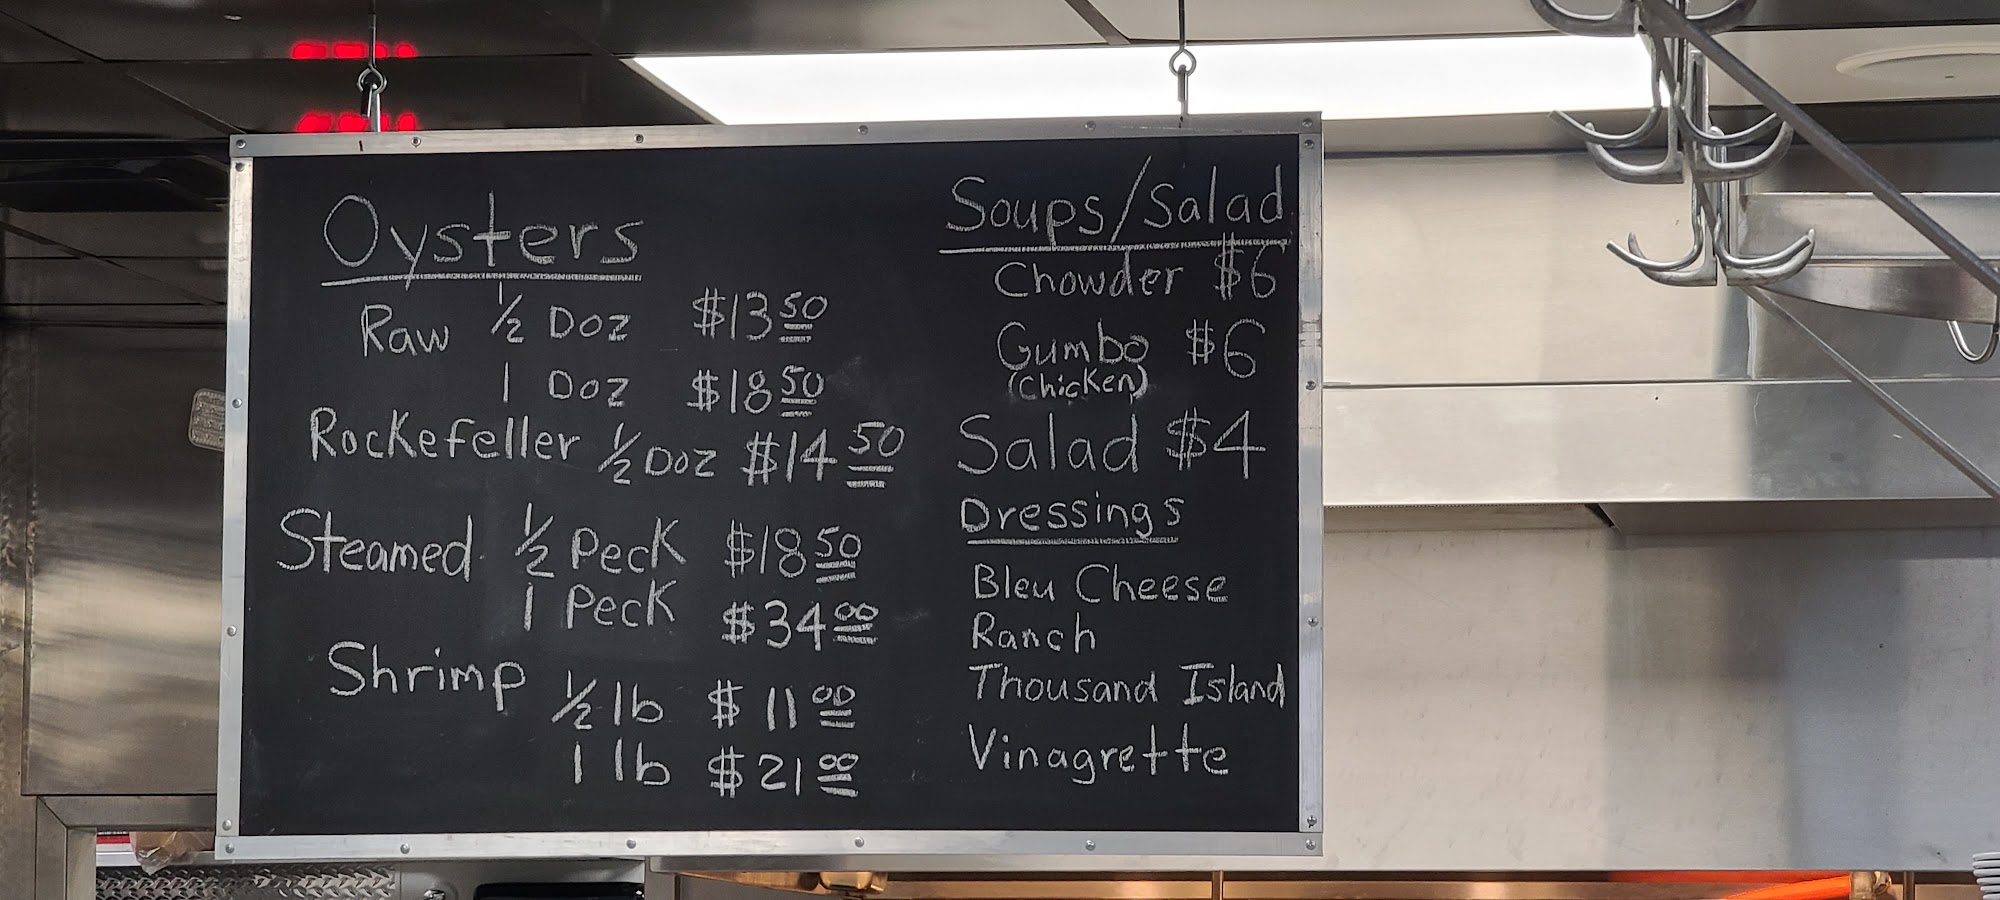 Oysters
Raw 1/2 Doz $13.50
1 Doz $18.50
Rockefeller 1/2 Doz $14.50
Steamed 1/2 Peck $18.50
1 Peck $34.00
Shrimp 1/2 lb $11.00
1 lb $21.00
Soups/Salad
Chowder $6
Gumbo $6
(Chicken)
Salad $4
Dressings
Bleu Cheese
Ranch
Thousand Island
Vinagrette